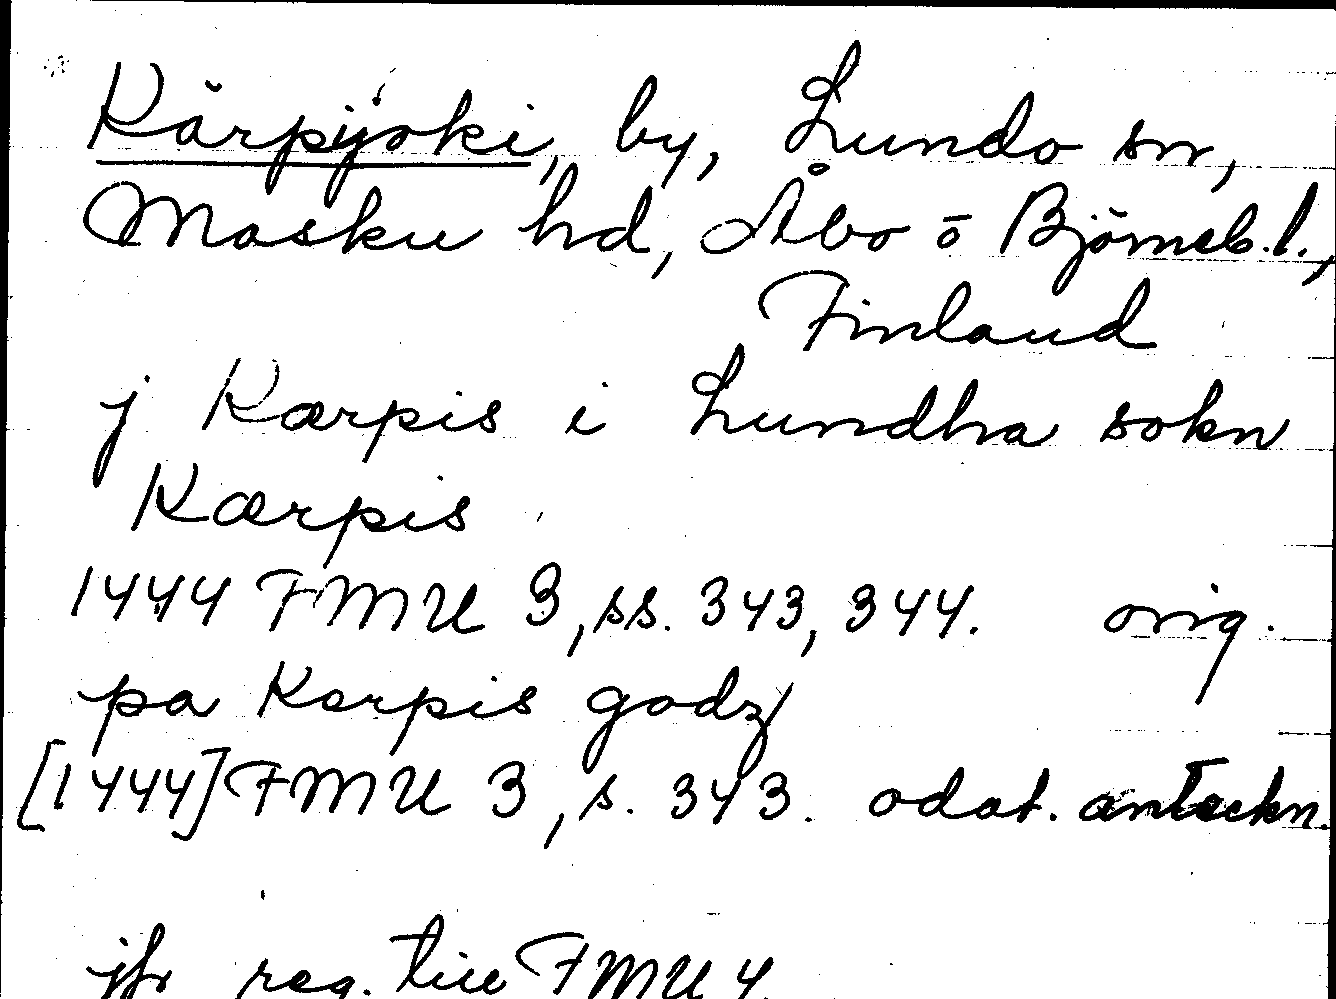 Kärpijoki, by, Lundo sn,
Masku hd, Åbo o Björneb. l.,
Finland
j Kærpis i Lundha sokn
Kærpis
1444 FMU 3, ss. 343, 344. orig.
pa Kerpis godz
[1444] FMU 3, s. 343. odat. anteckn.
jfr reg. till FMU 4.